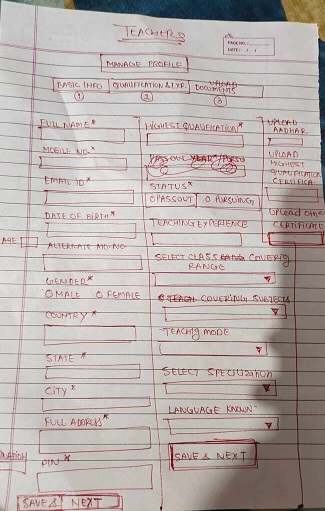 TEACHERS
PAGE NO.:
DATE: / /
MANAGE PROFILE
BASIC INFO
1
QUALIFICATION & EXP.
2
UPLOAD DOCUMENTS
3
FULL NAME*
MOBILE NO.*
EMAIL ID*
DATE OF BIRTH*
AGE
ALTERNATE MO.NO.
GENDER*
MALE FEMALE
COUNTRY*
STATE *
CITY*
FULL ADDRESS*
PIN *
SAVE & NEXT
HIGHEST QUALIFICATION*
STATUS*
PASSOUT PURSUING
TEACHING EXPERIENCE
SELECT CLASS COVERIG
RANGE
COVERING SUBJECTS
TEACHIG MODE
SELECT
LANGUAGE KNOWN
SAVE & NEXT
UPLOAD
AADHAR
UPLOAD
HIGHEST
QUALIFICATION
CERTIFICA
Upload
CERTIFICATE